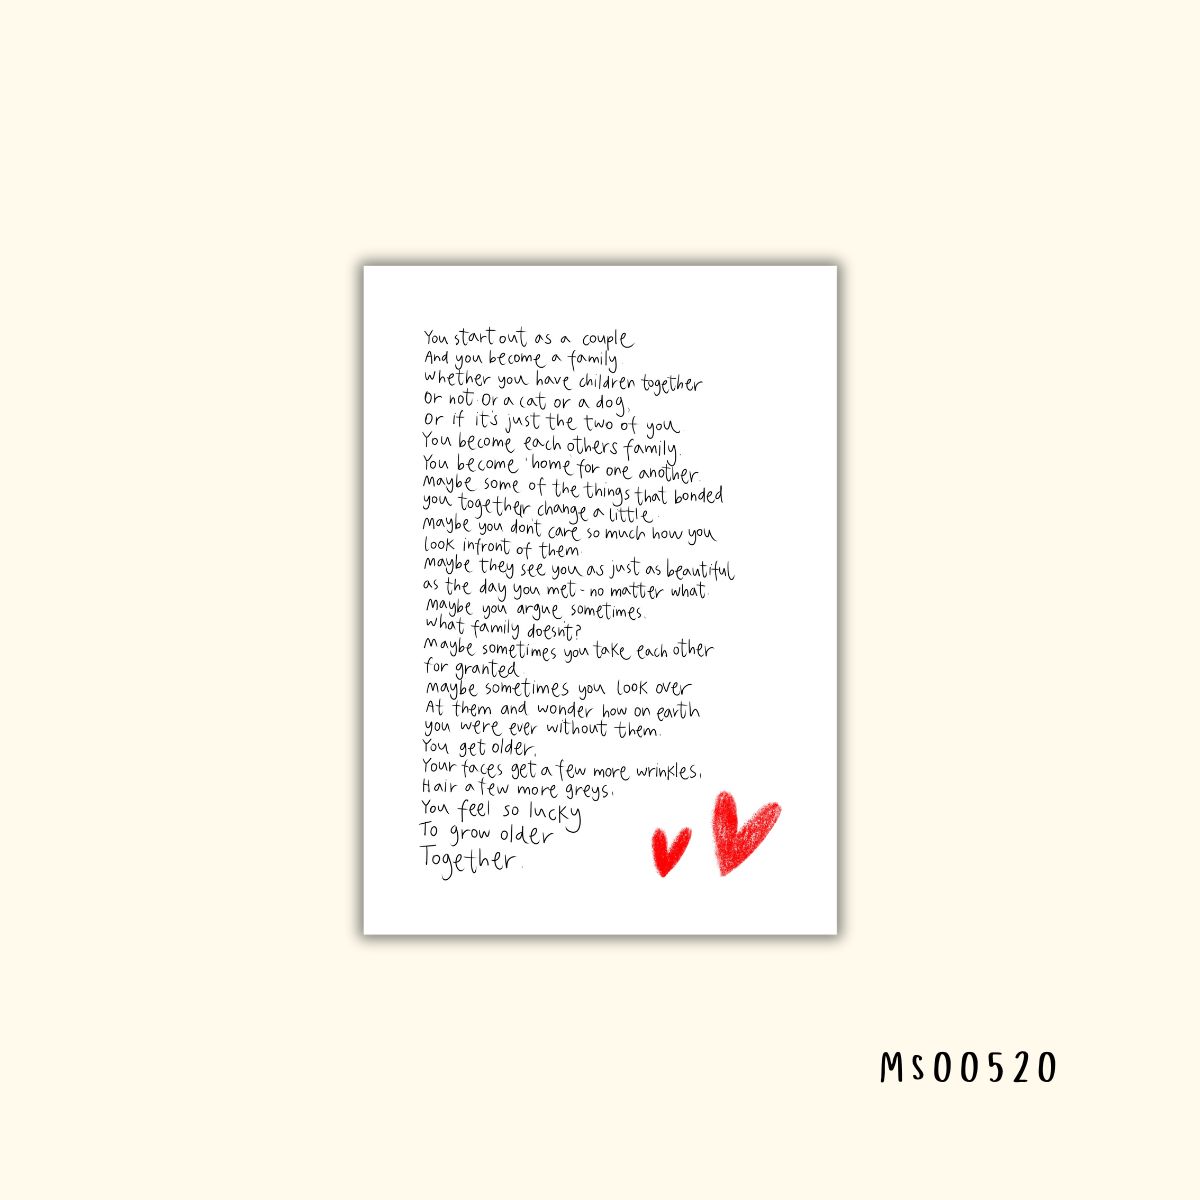 You start out as a couple
And you become a family
whether you have children together
Or not. Or a cat or a dog,
Or if it's just the two of you
You become each others family.
You become 'home' for one another.
maybe some of the things that bonded
you together change a little.
maybe you don't care so much how you
look infront of them.
maybe they see you as just as beautiful
as the day you met - no matter what.
maybe you argue sometimes.
what family doesn't?
maybe sometimes you take each other
for granted.
maybe sometimes you look over
At them and wonder how on earth
you were ever without them.
You get older,
Your faces get a few more wrinkles,
Hair a few more greys,
You feel so lucky
To grow older
Together.
Ms00520